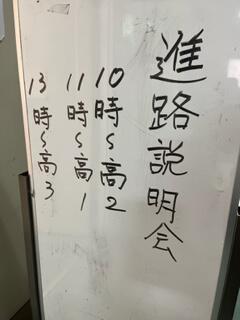 進路説明会
10時～高2
11時～高1
13時～高3